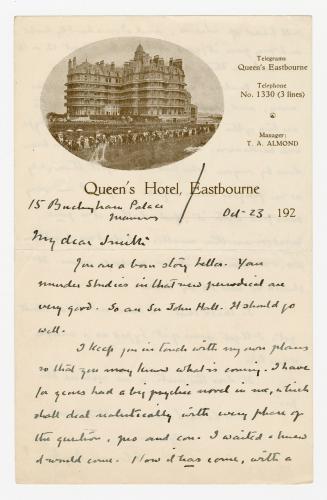 Telegrams
Queen's Eastbourne
Telephone
No. 1330 (3 lines)
Manager:
T. A. ALMOND
Queen's Hotel, Eastbourne
15 Buckingham Palace
Mansions
Oct 23. 192
My dear Smith
You are a born story teller. Your
murder studies in that new periodical are
very good. So are Sir John Hall. It should go
well.
I keep you in touch with my own plans
so that you may know what is coming. I have
for years had a big psychic novel in me, which
shall deal realistically with every phase of
the question, pro and con. I waited & knew
it would come. Now it has come, with a